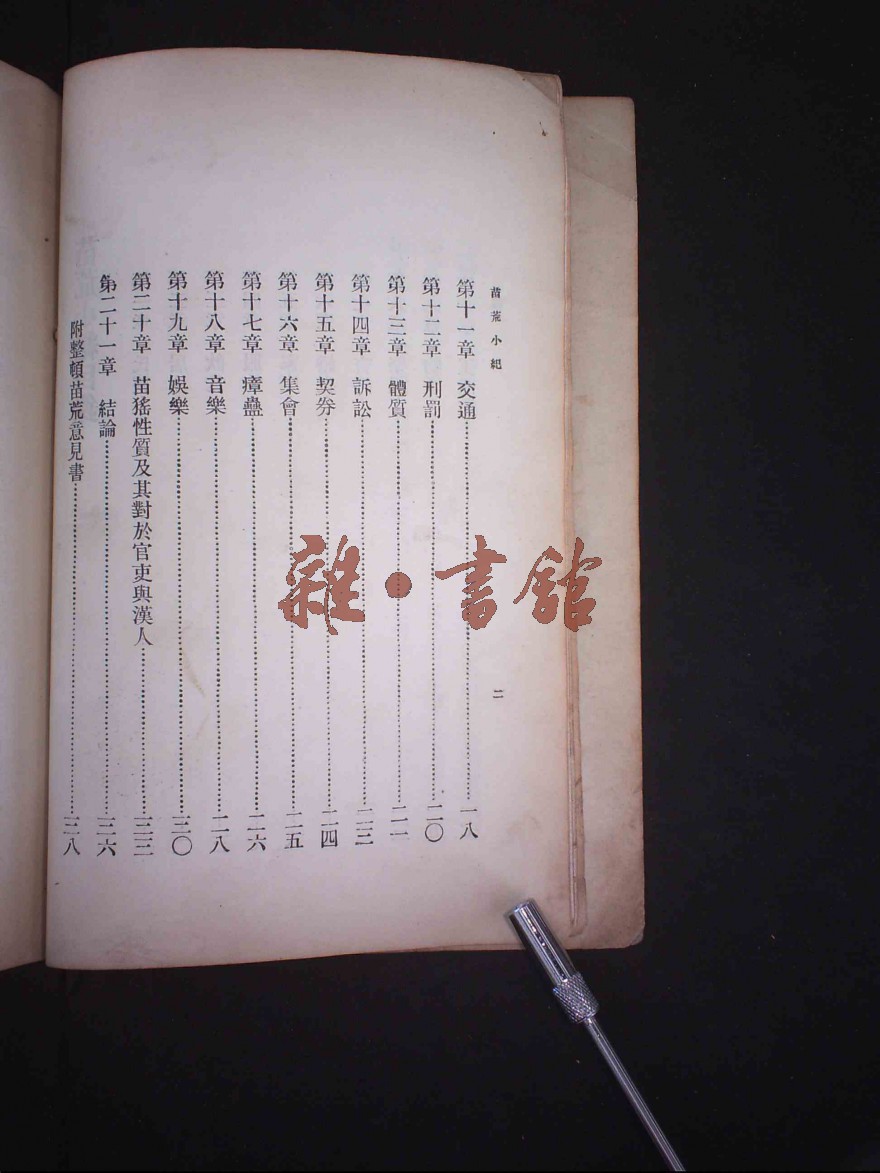 苗荒小紀
二
第十一章 交通……一八
第十二章 刑罰……二〇
第十三章 體質……二一
第十四章 訴訟……二三
第十五章 契券……二四
第十六章 集會……二五
第十七章 瘴蠱……二六
第十八章 音樂……二八
第十九章 娛樂……三〇
第二十章 苗猺性質及其對於官吏與漢人……三三
第二十一章 結論……三六
附整頓苗荒意見書……三八
雜·書館